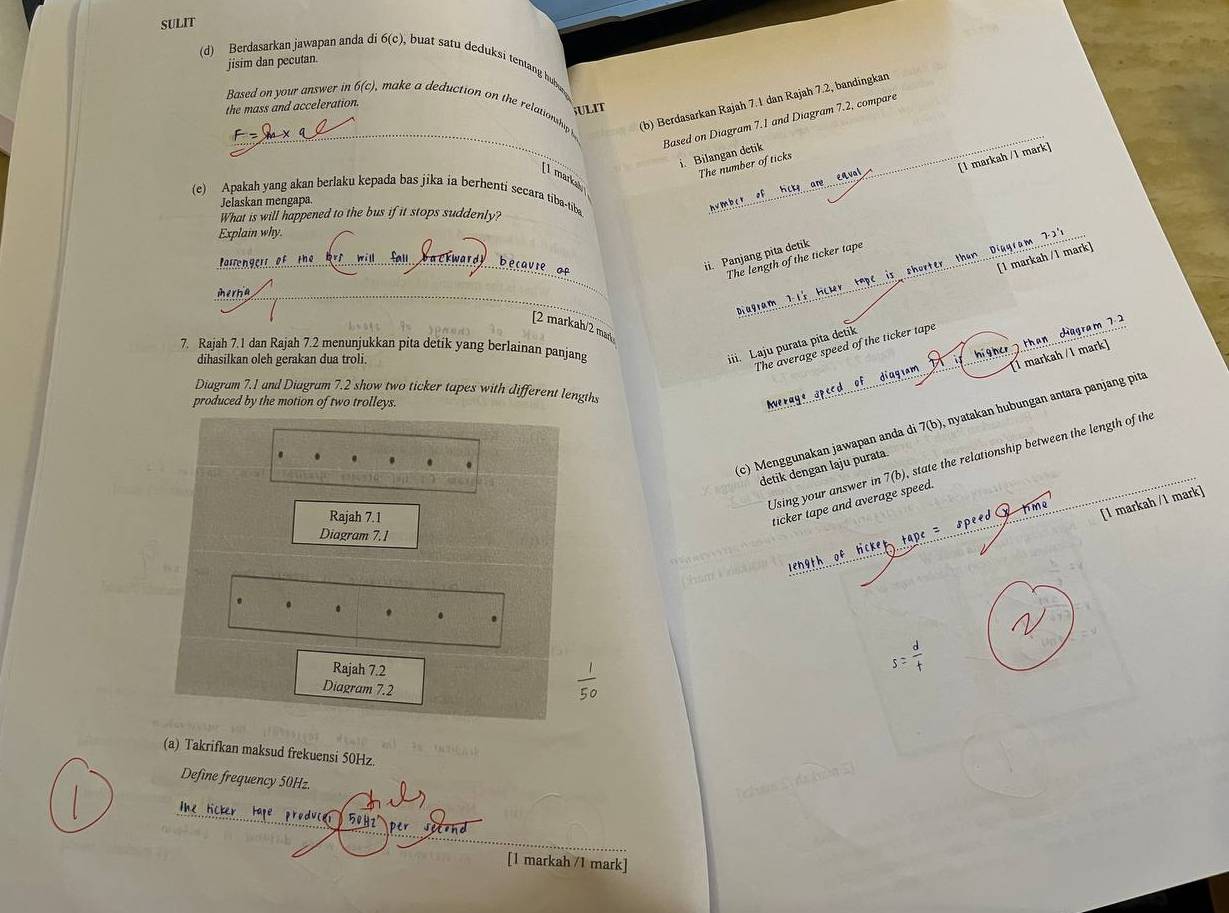 SULIT
(d) Berdasarkan jawapan anda di 6(c), buat satu deduksi tentang
jisim dan pecutan.
Based on your answer in 6(c), make a deduction on the relationship
the mass and acceleration.
F = m x a
[1 markah/
(e) Apakah yang akan berlaku kepada bas jika ia berhenti secara tiba-tiba
Jelaskan mengapa.
What is will happened to the bus if it stops suddenly?
Explain why.
Passengers of the bus will fall backwards because of
inertia
[2 markah/2 mark
7. Rajah 7.1 dan Rajah 7.2 menunjukkan pita detik yang berlainan panjang
dihasilkan oleh gerakan dua troli.
Diagram 7.1 and Diagram 7.2 show two ticker tapes with different lengths
produced by the motion of two trolleys.
Rajah 7.1
Diagram 7.1
Rajah 7.2
Diagram 7.2
1
50
(a) Takrifkan maksud frekuensi 50Hz.
Define frequency 50Hz.
The ticker tape produces 50Hz per second
1
[1 markah /1 mark]
SULIT
(b) Berdasarkan Rajah 7.1 dan Rajah 7.2, bandingkan
Based on Diagram 7.1 and Diagram 7.2, compare
i. Bilangan detik
The number of ticks
number of ticks are equal
[1 markah /1 mark]
ii. Panjang pita detik
The length of the ticker tape
Diagram 7.1's ticker tape is shorter than Diagram 7.2's
[1 markah /1 mark]
iii. Laju purata pita detik
The average speed of the ticker tape
Average speed of diagram 7.1 is higher than diagram 7.2
[1 markah /1 mark]
(c) Menggunakan jawapan anda di 7(b), nyatakan hubungan antara panjang pita
detik dengan laju purata.
Using your answer in 7(b), state the relationship between the length of the
ticker tape and average speed.
length of ticker tape = speed x time
[1 markah /1 mark]
2
s = d
t